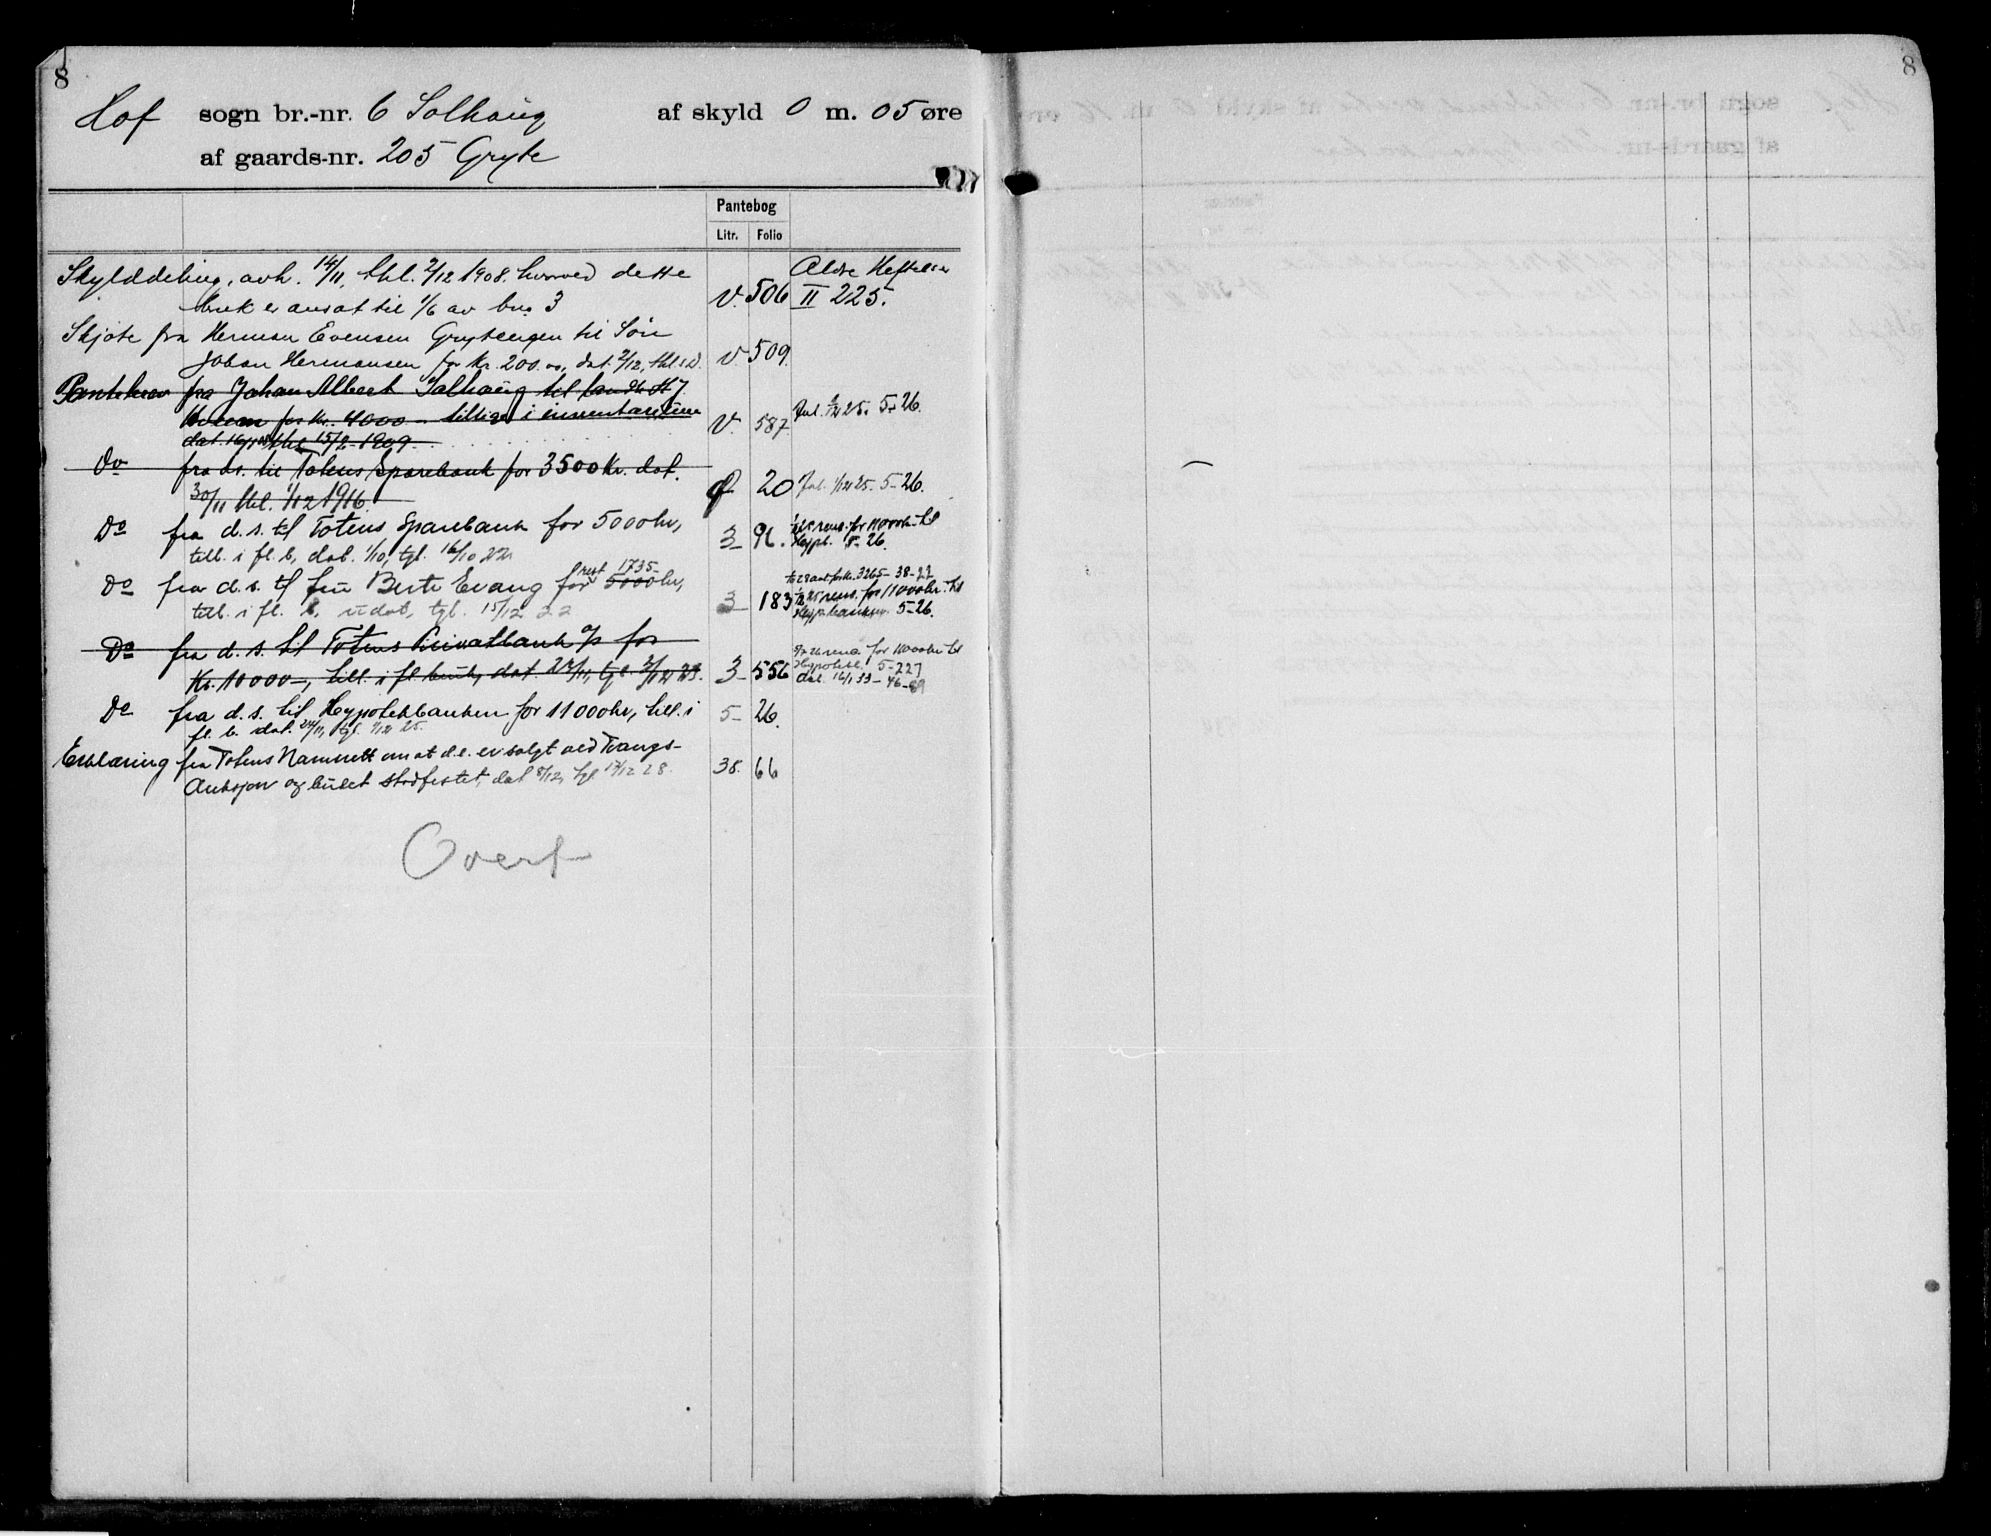 8
Hof sogn br.-nr. 6 Solhaug af skyld 0 m. 05 øre
af gaards-nr. 205 Gryte
Pantebog
Litr. Folio
Skylddeling, avh. 14/11, thl. 2/12 1908. hvorved dette Aldre Heftelser
bruk er ansat til 1/6 av bno 3 V. 506 II 225.
Skjøte fra Herman Evensen Grytengen til Søn
Johan Hermansen for kr. 200.00, dat. 2/12, thl. s.D. V. 509.
Pantebrev fra Johan Albert Solhaug til
for kr. 4000 tillige i inventarium V. 587 Jul. 1/12 25. 5-26.
dat. thl. 15/2 1909.
Do fra ds. til Totens Sparebank for 3500 Kr. dat.
30/11 thl. 1/12 1916. Ø 20 Jul. 1/12 25. 5-26.
Do fra d. s. til Totens Sparebank for 5000 kr,
till. i fl. b, dat. 1/10, tgl. 16/10 22. 3- 91. rens. for 11000 kr. til
Hypb. 5-26.
Do fra d. s. til fru Berte Evang for rest 1735- 5000 kr,
till. i fl. b, dat, tgl. 15/12 22 3- 183
for kr. 3265- 38-22
rens. for 11000 kr. til
Hypbanken. 5-26.
Do fra d. s. til Totens Privatbank a/s for
Kr. 10000-, till. i fl. bruk, dat 24/11, tgl. 3/12 23. 3- 556
for 11000 kr til
Hypotekb. 5-227
16/1 33- 46-
Do fra d. s. til Hypotekbanken for 11000 kr, till. i 5- 26.
fl. b. dat. 24/11, tgl. 1/12 25.
Erklæring fra Totens Namsrett om at d.e. er solgt ved Tvangs-
Auksjon og budet stadfestet, dat 8/12, tgl 17/12 28. 38. 66
Overf
8